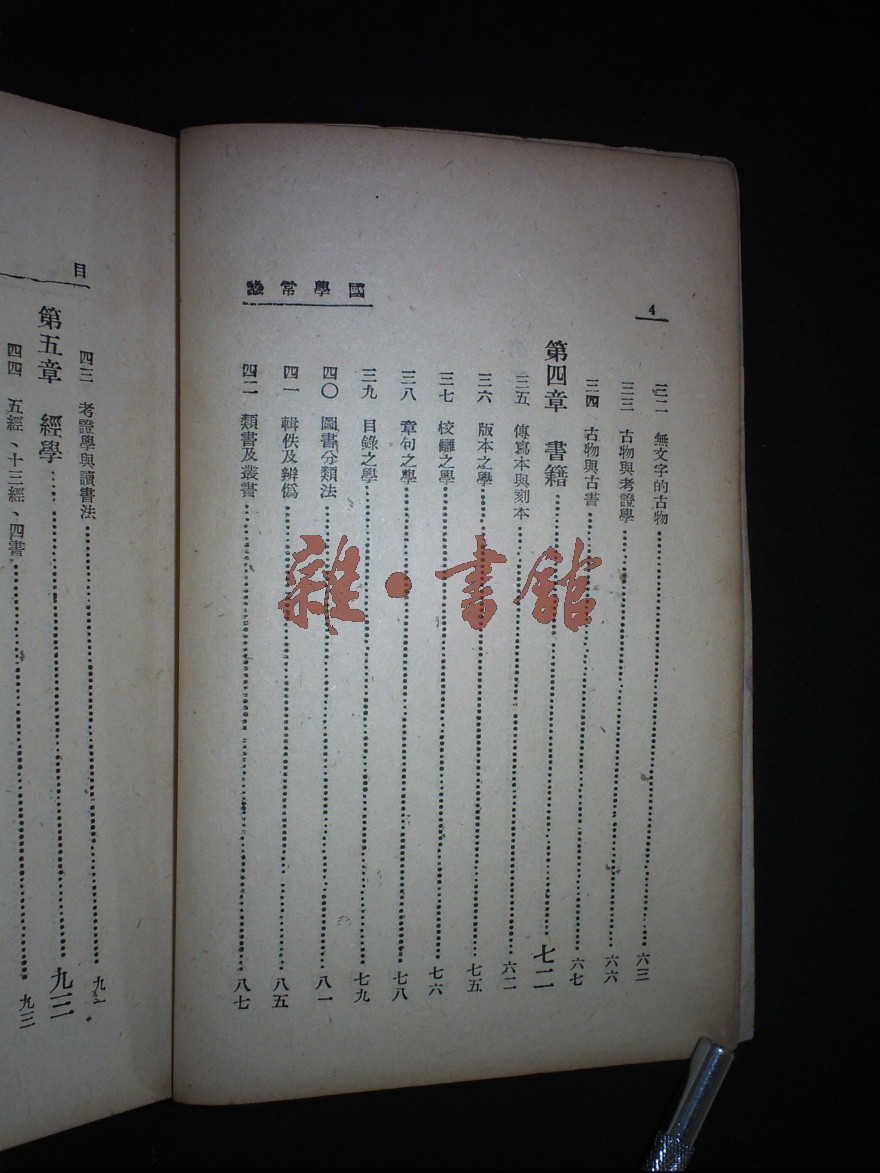 4
國學常識
三二 無文字的古物……六三
三三 古物與考證學……六六
三四 古物與古書……六七
第四章 書籍……七二
三五 傳寫本與刻本……六二
三六 版本之學……七五
三七 校讎之學……七六
三八 章句之學……七八
三九 目錄之學……七九
四〇 圖書分類法……八一
四一 輯佚及辨僞……八五
四二 類書及叢書……八七
目
四三 考證學與讀書法……九一
第五章 經學……九三
四四 五經、十三經、四書……九三
雜·書館